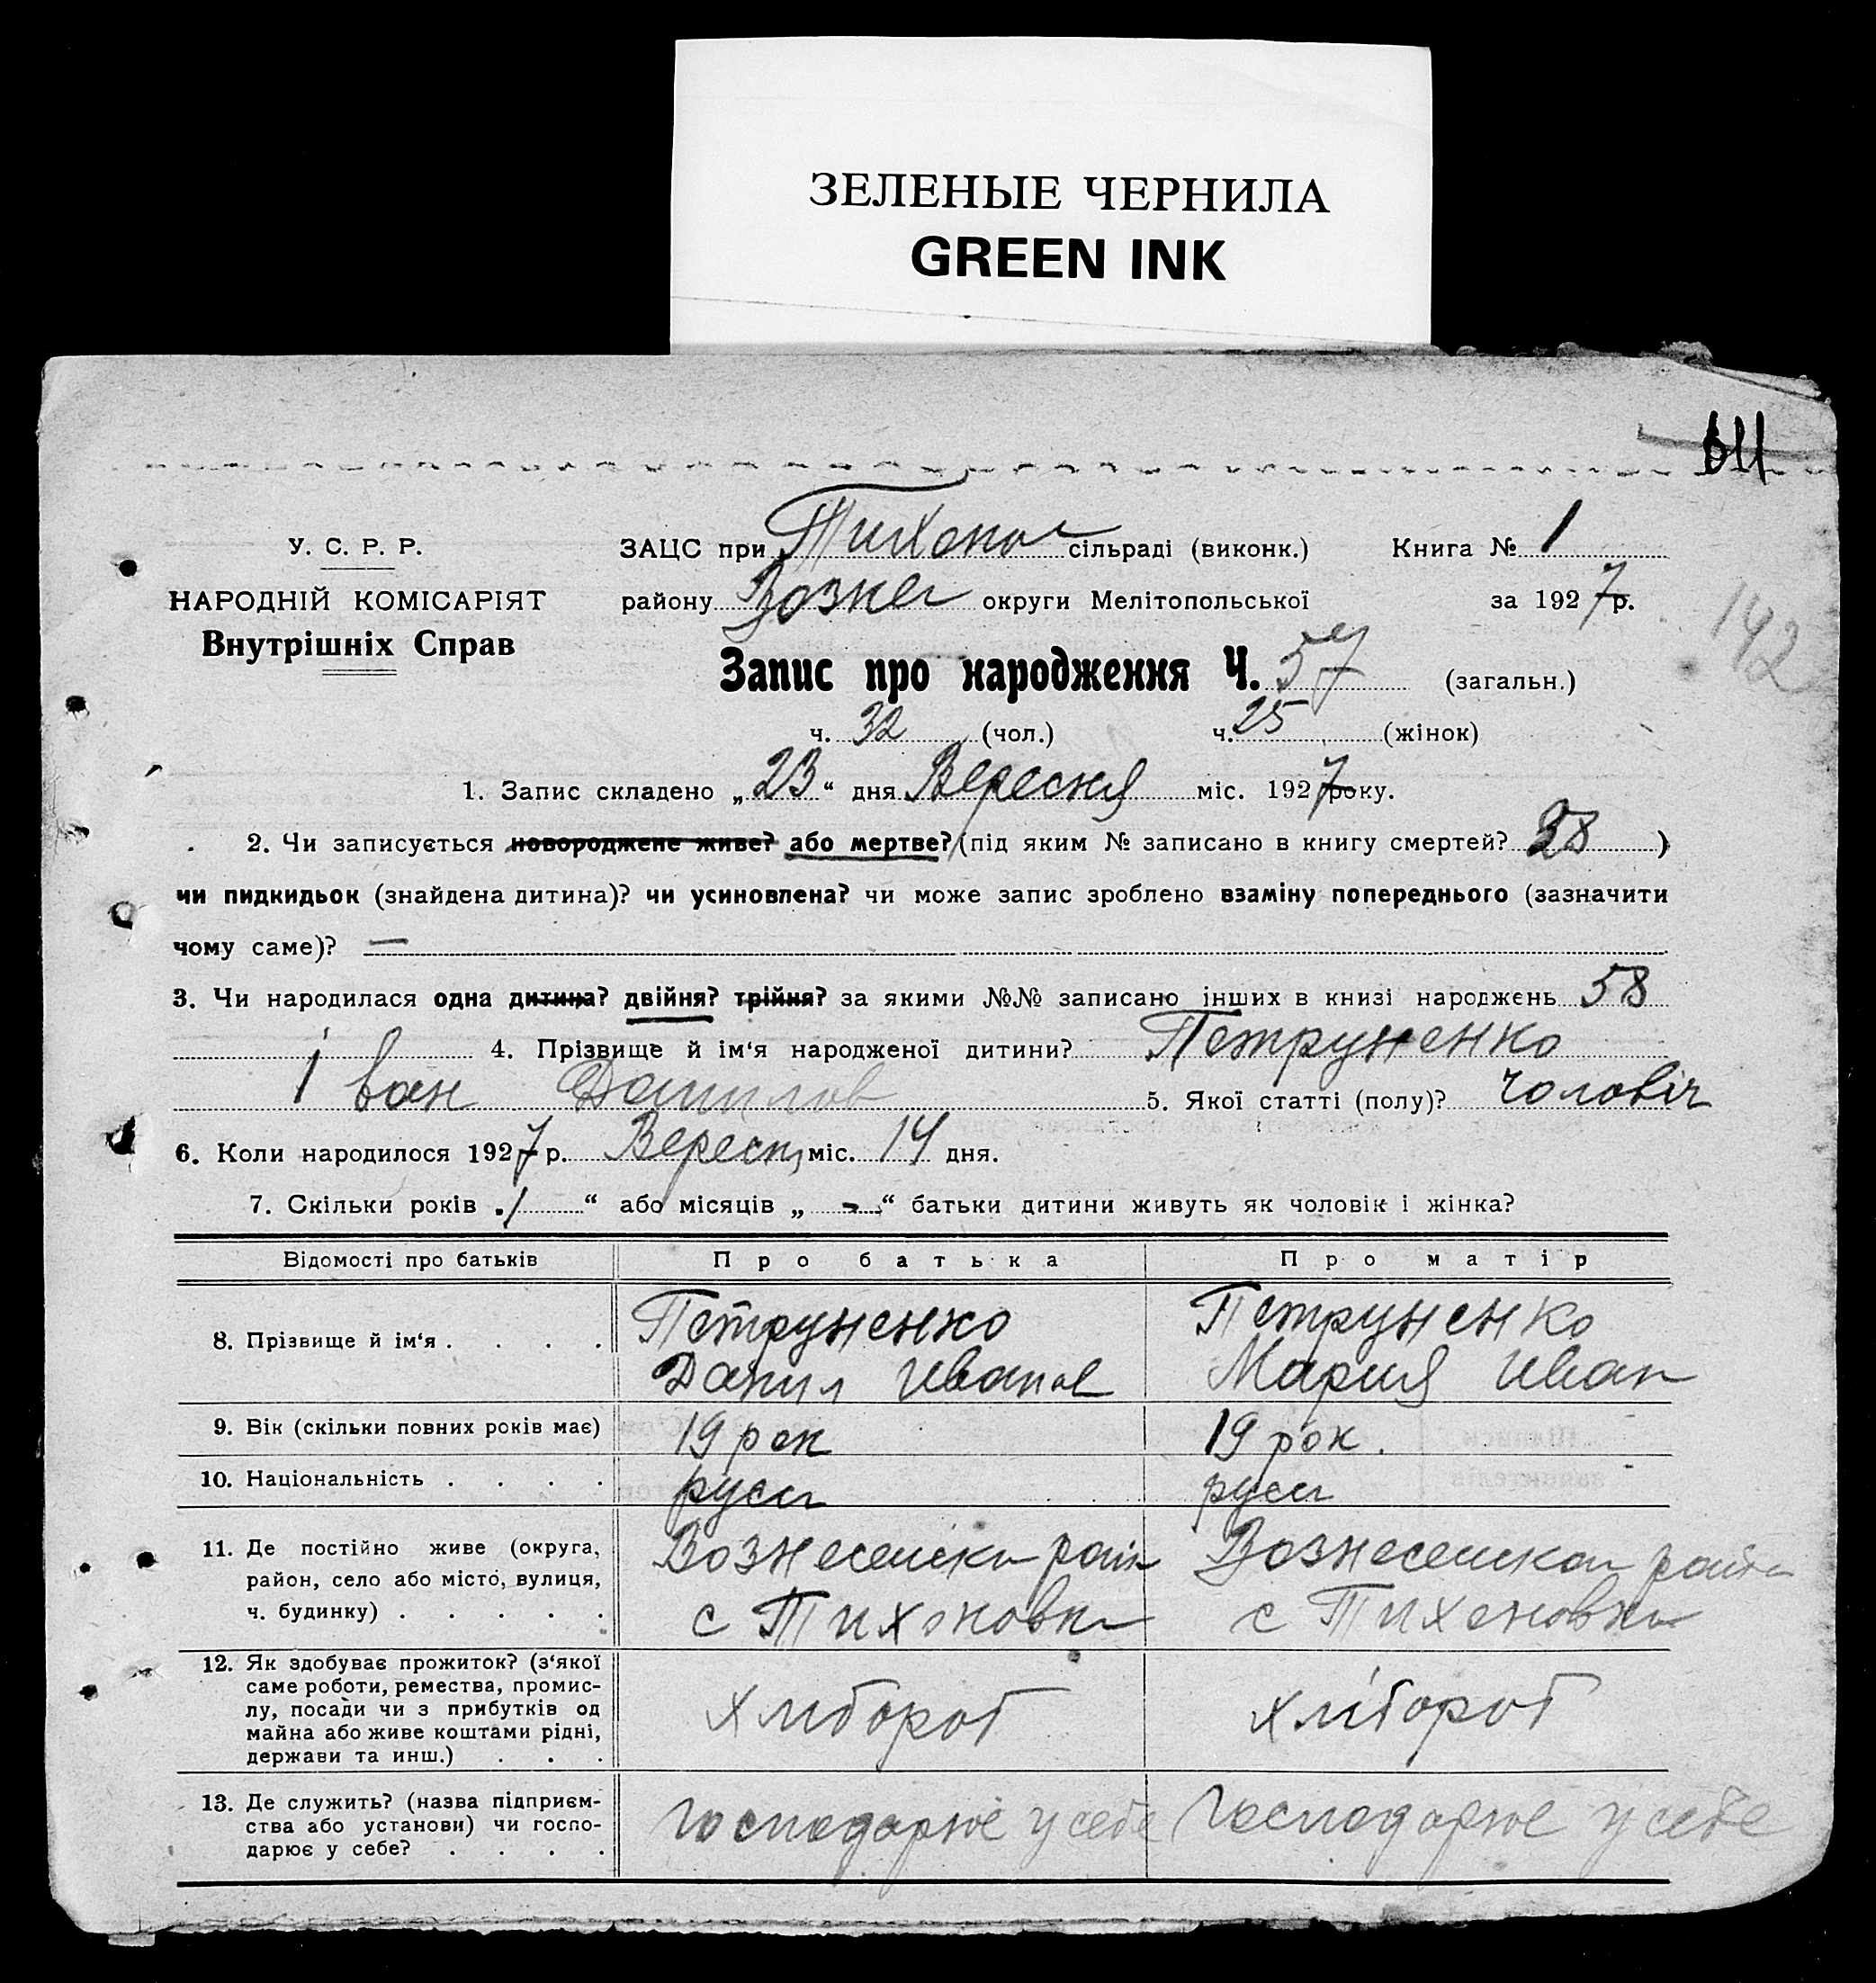 ЗЕЛЕНЫЕ ЧЕРНИЛА
GREEN INK
У. С. Р. Р.
НАРОДНІЙ КОМІСАРІЯТ
Внутрішніх Справ
ЗАЦС при Тихоно сільраді (виконк.) Книга № 1
району Вознес округи Мелітопольської за 1927 р.
142
Запис про народження Ч. 57 (загальн.)
ч. 32 (чол.) ч. 25 (жінок)
1. Запис складено „23“ дня Вересня міс. 1927 року.
2. Чи записується новороджене живе? або мертве? (під яким № записано в книгу смертей? 38 )
чи пидкидьок (знайдена дитина)? чи усиновлена? чи може запис зроблено взаміну попереднього (зазначити
чому саме)? —
3. Чи народилася одна дитина? двійня? трійня? за якими №№ записано інших в книзі народжень 58
4. Прізвище й ім‘я народженої дитини? Петруненко
Іван Данилов 5. Якої статті (полу)? Чоловіч
6. Коли народилося 1927 р. Вересн міс. 14 дня.
7. Скільки років „1“ або місяців „ - “ батьки дитини живуть як чоловік і жінка?
Відомості про батьків Про батька Про матір
8. Прізвище й ім‘я . . . . Петруненко Петруненко
Данил Иванов Мария Иван
9. Вік (скільки повних років має) 19 рок 19 рок.
10. Національність . . . . русск русск
11. Де постійно живе (округа, район, село або місто, вулиця, ч. будинку) . . . . . Вознесенски район Вознесенски район
с Тихоновки с Тихоновки
12. Як здобуває прожиток? (з‘якої саме роботи, ремества, промислу, посади чи з прибутків од майна або живе коштами рідні, держави та инш.) . . . хлиборот хліборот
13. Де служить? (назва підприємства або установи) чи господарює у себе? . . . . господарює у себе Господарює у себе